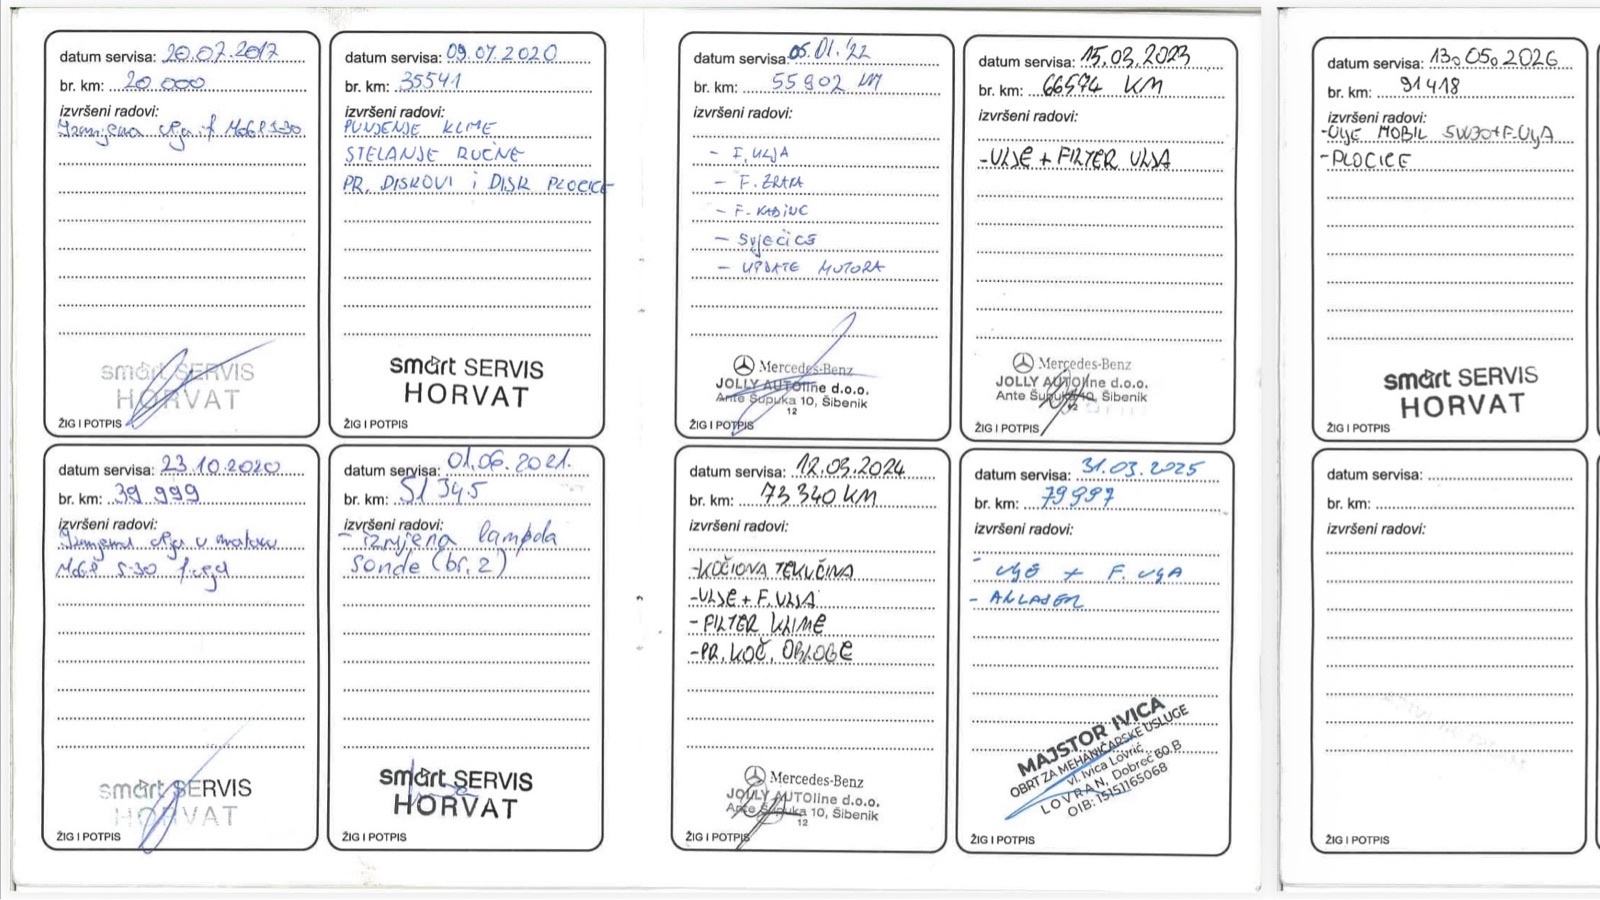 datum servisa: 20.07.2017
br. km: 20 000
izvršeni radovi:
Izmjena ulja i f. MoGP 5-30
smart SERVIS
HORVAT
ŽIG I POTPIS
datum servisa: 09.07.2020
br. km: 35541
izvršeni radovi:
PUNJENJE KLIME
STELANJE RUČNE
PR. DISKOVI i DISK PLOCICE
smart SERVIS
HORVAT
ŽIG I POTPIS
datum servisa: 23.10.2020
br. km: 39 999
izvršeni radovi:
Izmjena ulja u motoru
MoGP 5-30 f. ulja
smart SERVIS
HORVAT
ŽIG I POTPIS
datum servisa: 01.06.2021.
br. km: 51 345
izvršeni radovi:
- izmjena lampda
sonde (br. 2)
smart SERVIS
HORVAT
ŽIG I POTPIS
datum servisa: 05.01.'22
br. km: 55902 KM
izvršeni radovi:
- F. ULJA
- F. ZRAKA
- F. KABINE
- Svječice
- UPDATE MOTORA
Mercedes-Benz
JOLLY AUTOline d.o.o.
Ante Šupuka 10, Šibenik
12
ŽIG I POTPIS
datum servisa: 15.03.2023
br. km: 66574 KM
izvršeni radovi:
-ULJE + FILTER ULJA
Mercedes-Benz
JOLLY AUTOline d.o.o.
Ante Šupuka 10, Šibenik
12
ŽIG I POTPIS
datum servisa: 12.03.2024
br. km: 73 340 KM
izvršeni radovi:
-KOČIONA TEKUČINA
-ULJE + F. ULJA
- FILTER KLIME
-PR. KOČ. OBLOGE
Mercedes-Benz
JOLLY AUTOline d.o.o.
Ante Šupuka 10, Šibenik
12
ŽIG I POTPIS
datum servisa: 31.03.2025
br. km: 79997
izvršeni radovi:
- UljE + F. UljA
- ANLASER
MAJSTOR IVICA
OBRT ZA MEHANIČARSKE USLUGE
vl. Ivica Lovrić
LOVRAN, Dobreć 60.B
OIB: 15151165068
ŽIG I POTPIS
datum servisa: 13.05.2026
br. km: 91418
izvršeni radovi:
-UljE MOBIL 5W30+F.UljA
-PLOCICE
smart SERVIS
HORVAT
ŽIG I POTPIS
datum servisa:
br. km:
izvršeni radovi:
ŽIG I POTPIS